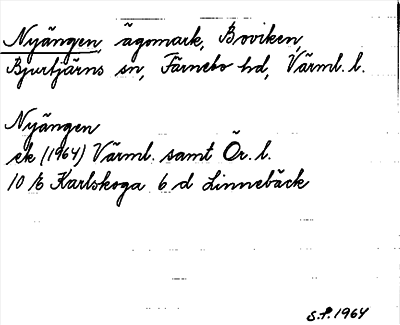 Nyängen, ägomark, Boviken,
Bjurtjärns sn, Färnebo hd, Värml. l.
Nyängen
ek (1964) Värml. samt Ör. l.
10 E Karlskoga 6 d Linnebäck
S.F. 1964